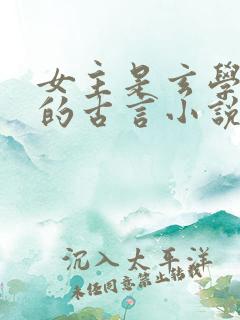 女主是玄學
的古言小說
沉入太平洋
未经同意禁止转载